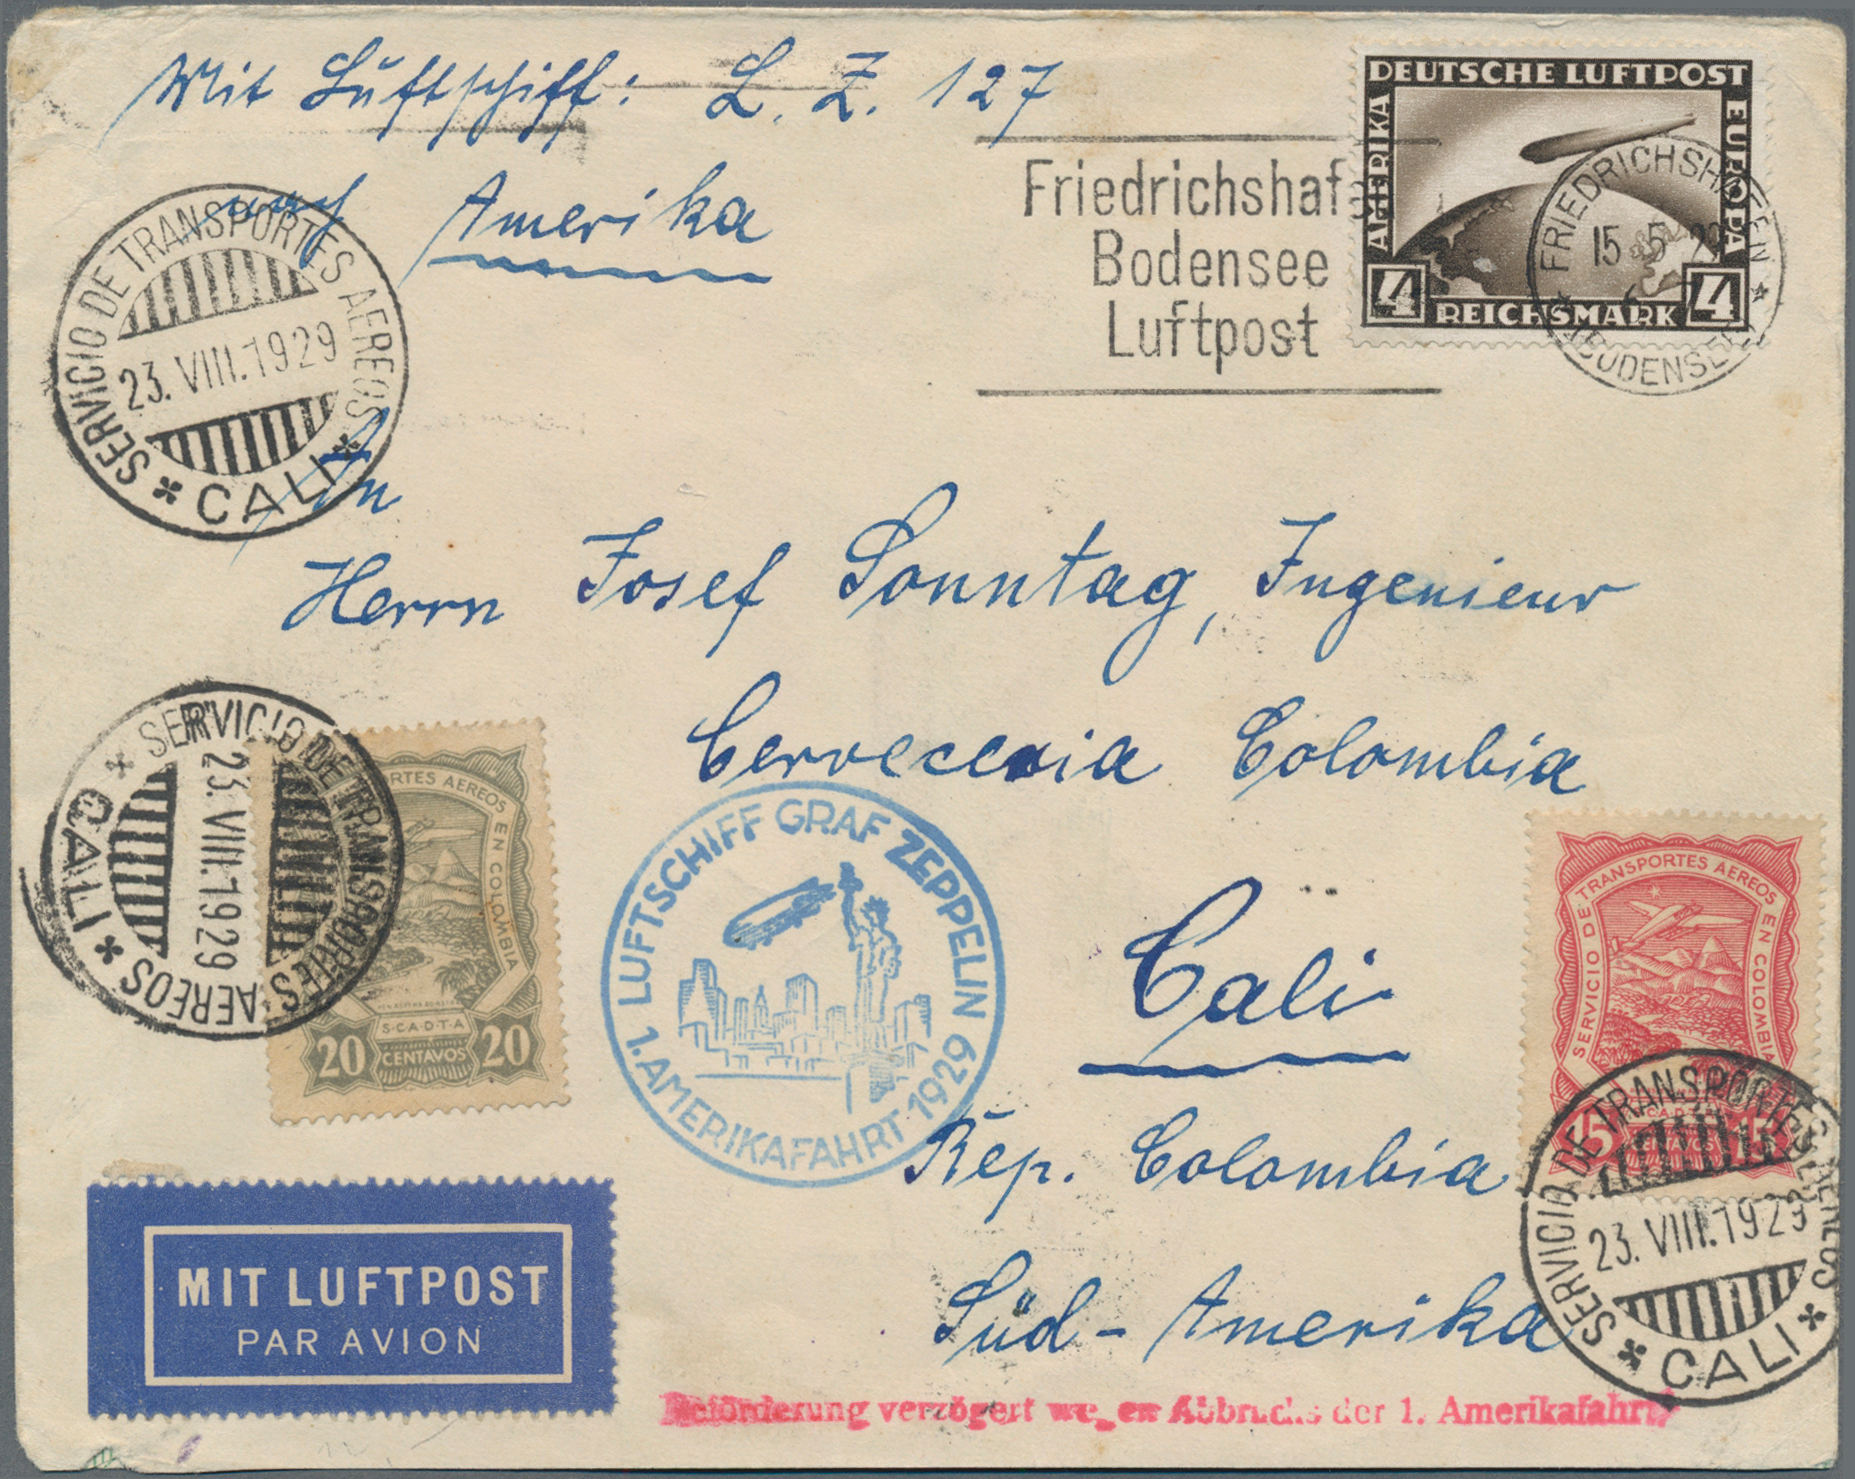 Mit Luftschiff: L. Z. 127
nach Amerika
DEUTSCHE LUFTPOST
AMERIKA
EUROPA
4 REICHSMARK 4
Friedrichshafen
Bodensee
Luftpost
FRIEDRICHSHAFEN
15 5 29
(BODENSEE)
SERVICIO DE TRANSPORTES AEREOS
23. VIII. 1929
* CALI *
An
Herrn Josef Sonntag, Ingenieur
Cerveceria Colombia
Cali
Rep. Colombia
Süd-Amerika
SERVICIO DE TRANSPORTES AEREOS
23. VIII. 1929
* CALI *
PORTES AEREOS EN COLOMBIA
S.C.A.D.T.A
20 CENTAVOS 20
LUFTSCHIFF GRAF ZEPPELIN
1. AMERIKAFAHRT 1929
SERVICIO DE TRANSPORTES AEREOS EN COLOMBIA
15
SERVICIO DE TRANSPORTES AEREOS
23. VIII. 1929
* CALI *
MIT LUFTPOST
PAR AVION
Beförderung verzögert wegen Abbruchs der 1. Amerikafahrt